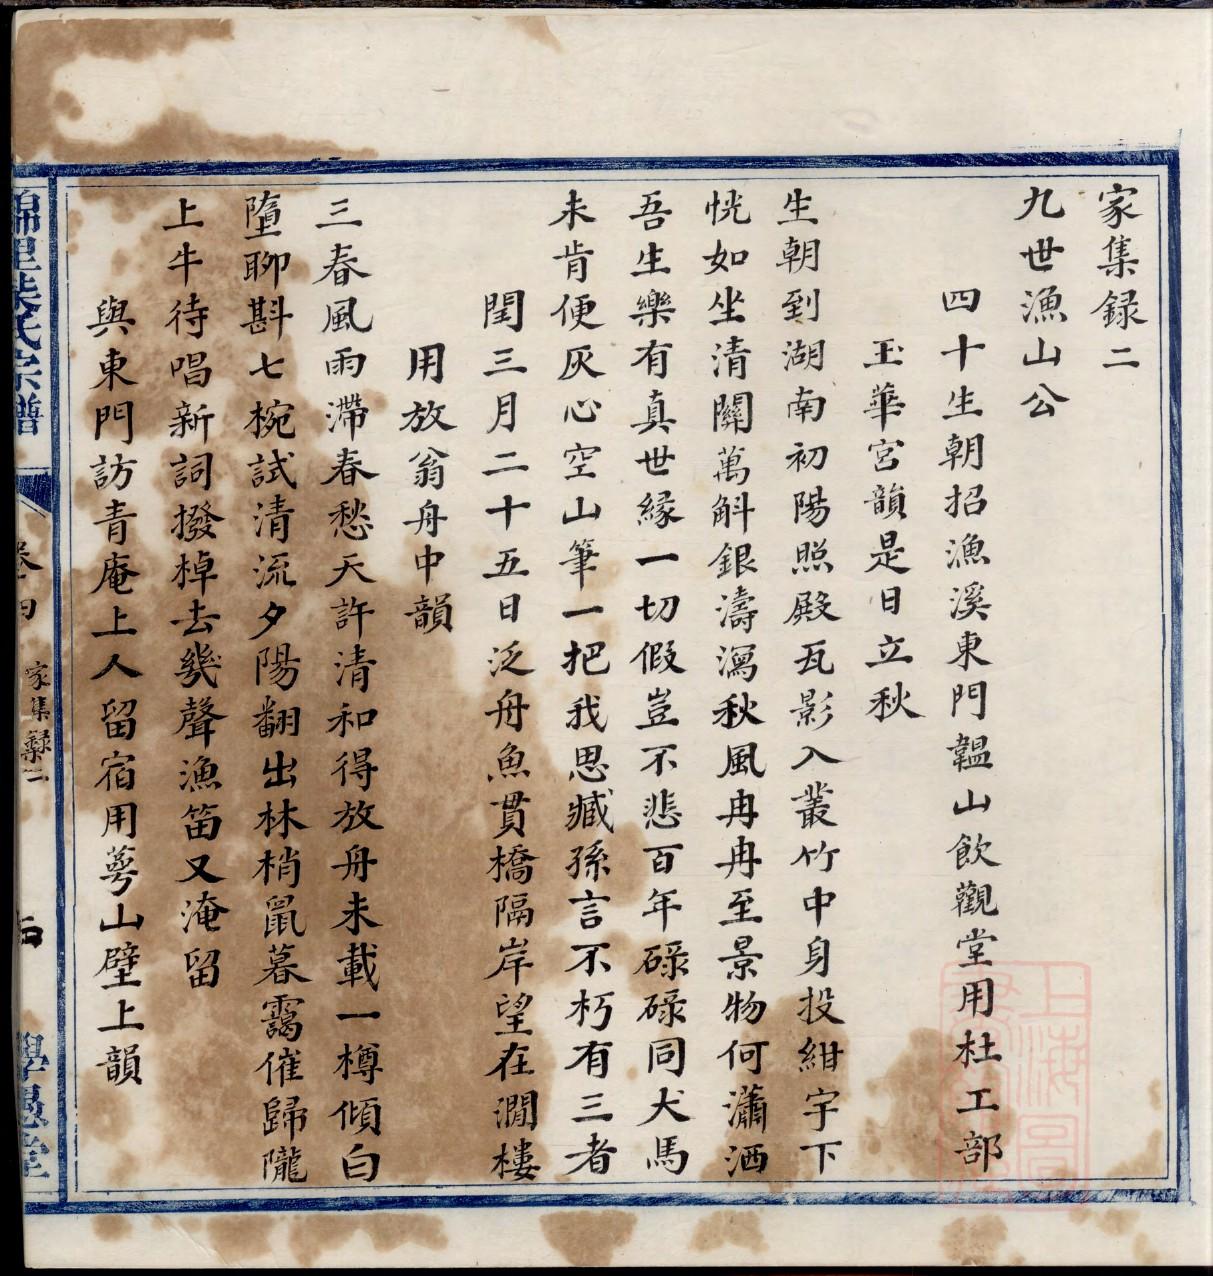 家集録二
九世漁山公
四十生朝招漁溪東門韞山飲觀堂用杜工部
玉華宮韻是日立秋
生朝到湖南初陽照殿瓦影入叢竹中身投紺宇下
恍如坐清關萬斛銀濤瀉秋風冉冉至景物何瀟洒
吾生樂有真世緣一切假豈不悲百年碌碌同犬馬
未肯便灰心空山筆一把我思臧孫言不朽有三者
閏三月二十五日泛舟魚貫橋隔岸望在澗樓
用放翁舟中韻
三春風雨滯春愁天許清和得放舟未載一樽傾白
墮聊斟七椀試清流夕陽翻出林梢鼠暮靄催歸隴
上牛待唱新詞撥棹去幾聲漁笛又淹留
與東門訪青庵上人留宿用蕚山壁上韻
錦里葉氏宗譜
卷十四
家集録二
學愚堂
上海圖